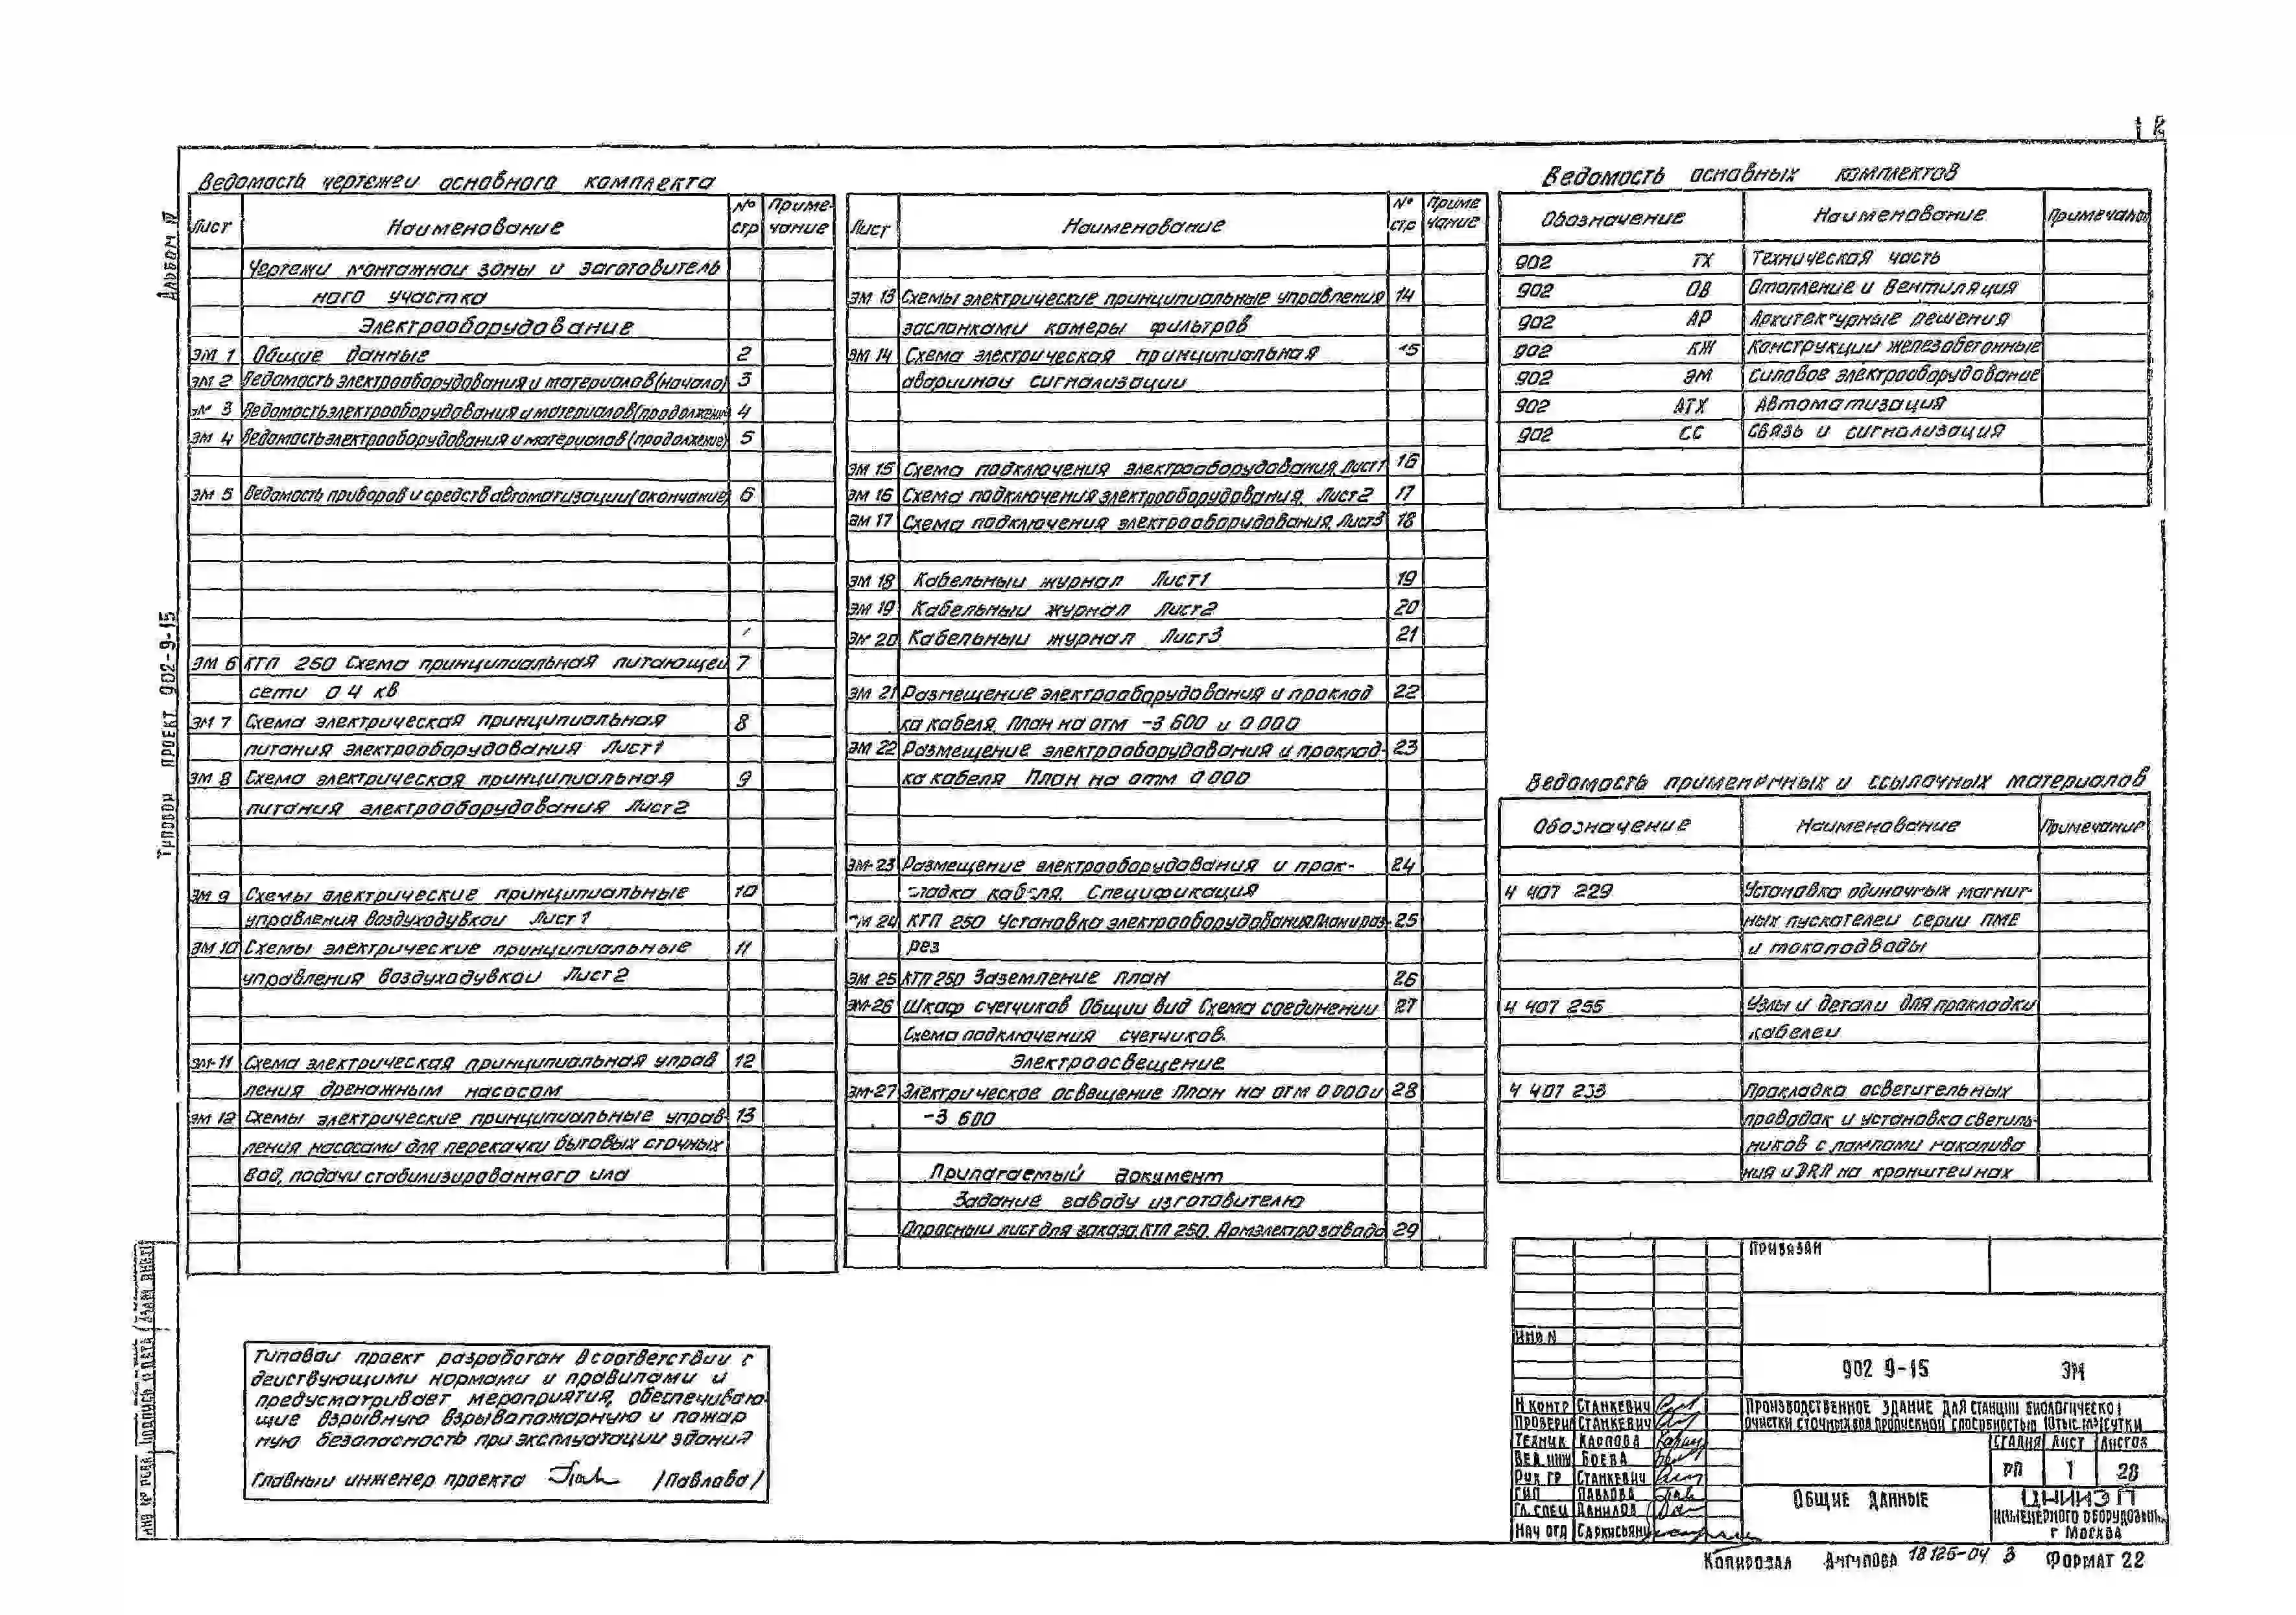 1 2
Альбом IV
Типовой проект 902-9-15
Ведомость чертежей основного комплекта
Лист Наименование № стр Примечание
Чертежи монтажной зоны и заготовитель
ного участка
Электрооборудование
ЭМ 1 Общие данные 2
ЭМ 2 Ведомость электрооборудования и материалов (начало) 3
ЭМ 3 Ведомость электрооборудования и материалов (продолжение) 4
ЭМ 4 Ведомость электрооборудования и материалов (продолжение) 5
ЭМ 5 Ведомость приборов и средств автоматизации (окончание) 6
ЭМ 6 КТП 250 Схема принципиальная питающей 7
сети 0 4 кв
ЭМ 7 Схема электрическая принципиальная 8
питания электрооборудования Лист 1
ЭМ 8 Схема электрическая принципиальная 9
питания электрооборудования Лист 2
ЭМ 9 Схемы электрические принципиальные 10
управления воздуходувкой Лист 1
ЭМ 10 Схемы электрические принципиальные 11
управления воздуходувкой Лист 2
ЭМ-11 Схема электрическая принципиальная управ 12
ления дренажным насосом
ЭМ 12 Схемы электрические принципиальные управ- 13
ления насосами для перекачки бытовых сточных
вод, подачи стабилизированного ила
Лист Наименование № стр Примечание
ЭМ 13 Схемы электрические принципиальные управления 14
заслонками камеры фильтров
ЭМ 14 Схема электрическая принципиальная 15
аварийной сигнализации
ЭМ 15 Схема подключения электрооборудования. Лист 1 16
ЭМ 16 Схема подключения электрооборудования. Лист 2 17
ЭМ 17 Схема подключения электрооборудования. Лист 3 18
ЭМ 18 Кабельный журнал Лист 1 19
ЭМ 19 Кабельный журнал Лист 2 20
ЭМ 20 Кабельный журнал Лист 3 21
ЭМ 21 Размещение электрооборудования и проклад 22
ка кабеля. План на отм -3 600 и 0 000
ЭМ 22 Размещение электрооборудования и проклад- 23
ка кабеля План на отм 0 000
ЭМ-23 Размещение электрооборудования и прок- 24
ладка кабеля. Спецификация
ЭМ 24 КТП 250 Установка электрооборудования План и раз- 25
рез
ЭМ 25 КТП 250 Заземление план 26
ЭМ-26 Шкаф счетчиков Общий вид Схема соединений 27
Схема подключения счетчиков.
Электроосвещение
ЭМ-27 Электрическое освещение План на отм 0 000 и 28
-3 600
Прилагаемый документ
Задание заводу изготовителю
Опросный лист для заказа КТП 250. Армэлектрозавода 29
Ведомость основных комплектов
Обозначение Наименование Примечание
902 ТХ Техническая часть
902 ОВ Отопление и вентиляция
902 АР Архитектурные решения
902 КЖ Конструкции железобетонные
902 ЭМ Силовое электрооборудование
902 АТХ Автоматизация
902 СС Связь и сигнализация
Ведомость примененных и ссылочных материалов
Обозначение Наименование Примечание
4 407 229 Установка одиночных магнит-
ных пускателей серии ПМЕ
и токоподводы
4 407 255 Узлы и детали для прокладки
кабелей
4 407 233 Прокладка осветительных
проводок и установка светиль-
ников с лампами накалива
ния и ДРЛ на кронштейнах
Типовой проект разработан в соответствии с
действующими нормами и правилами и
предусматривает мероприятия, обеспечиваю-
щие взрывную взрывопожарную и пожар
ную безопасность при эксплуатации здания
Главный инженер проекта /Павлова/
Инв № подл. Подпись и дата Взам инв
Привязан
Инв N
902 9-15 ЭМ
Н контр Станкевич
Проверил Станкевич
Техник Карпова
Вед инж Боева
Рук гр Станкевич
ГИП Павлова
Гл. спец Данилов
Нач отд Саркисьянц
Производственное здание для станции биологической
очистки сточных вод пропускной способностью 10 тыс. м3/сутки
Стадия Лист Листов
РП 1 28
Общие данные
ЦНИИЭП
инженерного оборудован.
г Москва
Копировал 18126-04 3 Формат 22